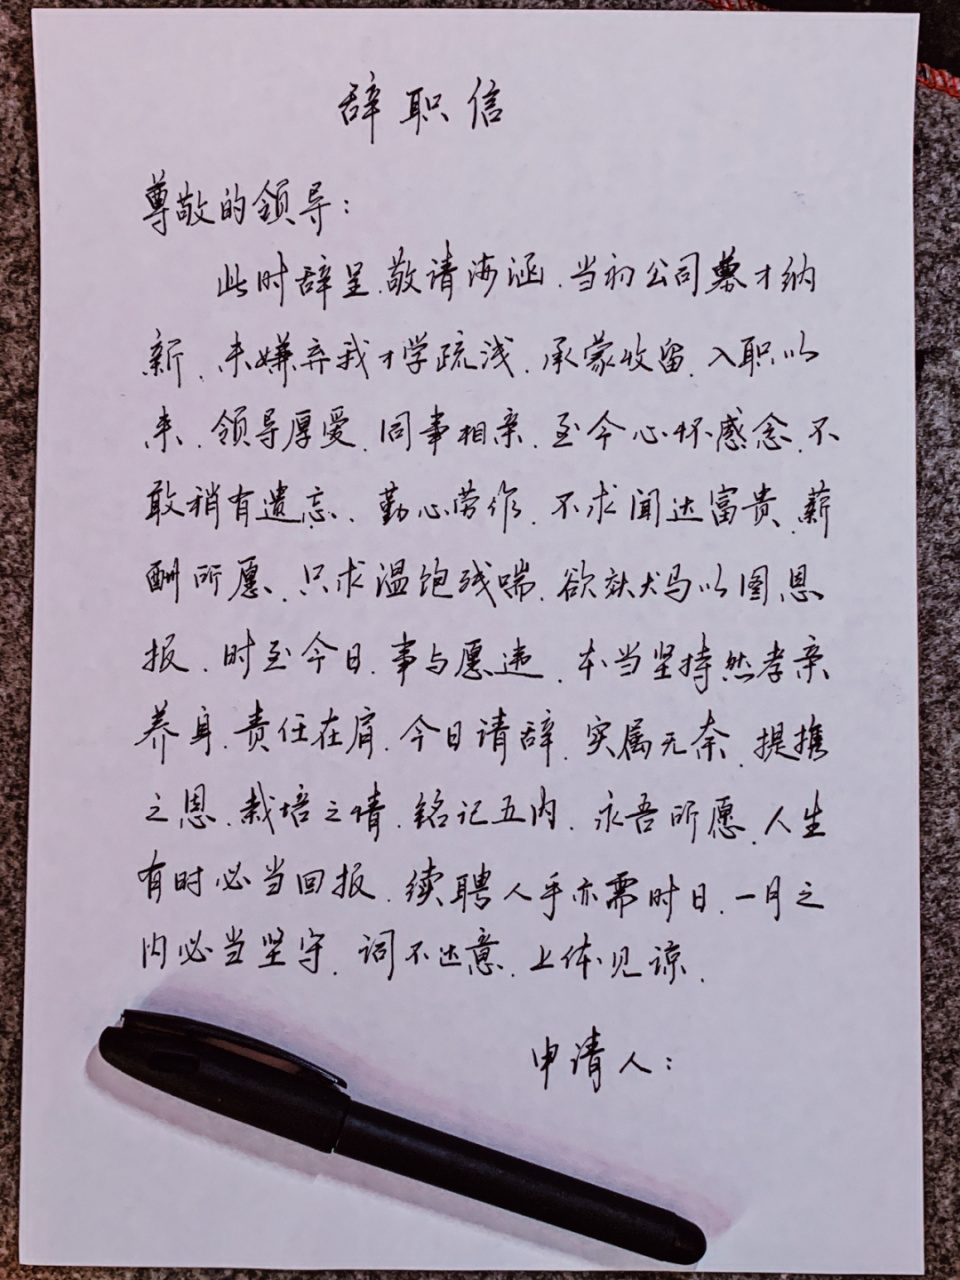 辞职信
尊敬的领导：
此时辞呈.敬请海涵.当初公司募才纳
新.未嫌弃我才学疏浅.承蒙收留.入职以
来.领导厚爱.同事相亲.至今心怀感念.不
敢稍有遗忘.勤心劳作.不求闻达富贵.薪
酬所愿.只求温饱残喘.欲效犬马以图恩
报.时至今日.事与愿违.本当坚持然孝亲
养身.责任在肩.今日请辞.实属无奈.提携
之恩.栽培之情.铭记五内.永吾所愿.人生
有时必当回报.续聘人手亦需时日.一月之
内必当坚守.词不达意.上体见谅.
申请人：